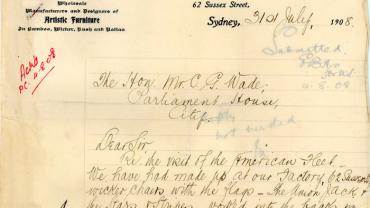 Wholesale
Manufacturers and Designers of
Artistic Furniture
In Bamboo, Wicker, Rush and Rattan
62 Sussex Street,
Sydney, 31st July, 1908.
Submitted
4.8.08
The Hon. Mr. C. G. Wade,
Parliament House,
City.
not needed
Dear Sir
Re the visit of the American Fleet.
We have had made up at our Factory, 62 Sussex St
wicker chairs with the flags - the Union Jack &
the Stars & Stripes work'd into the backs